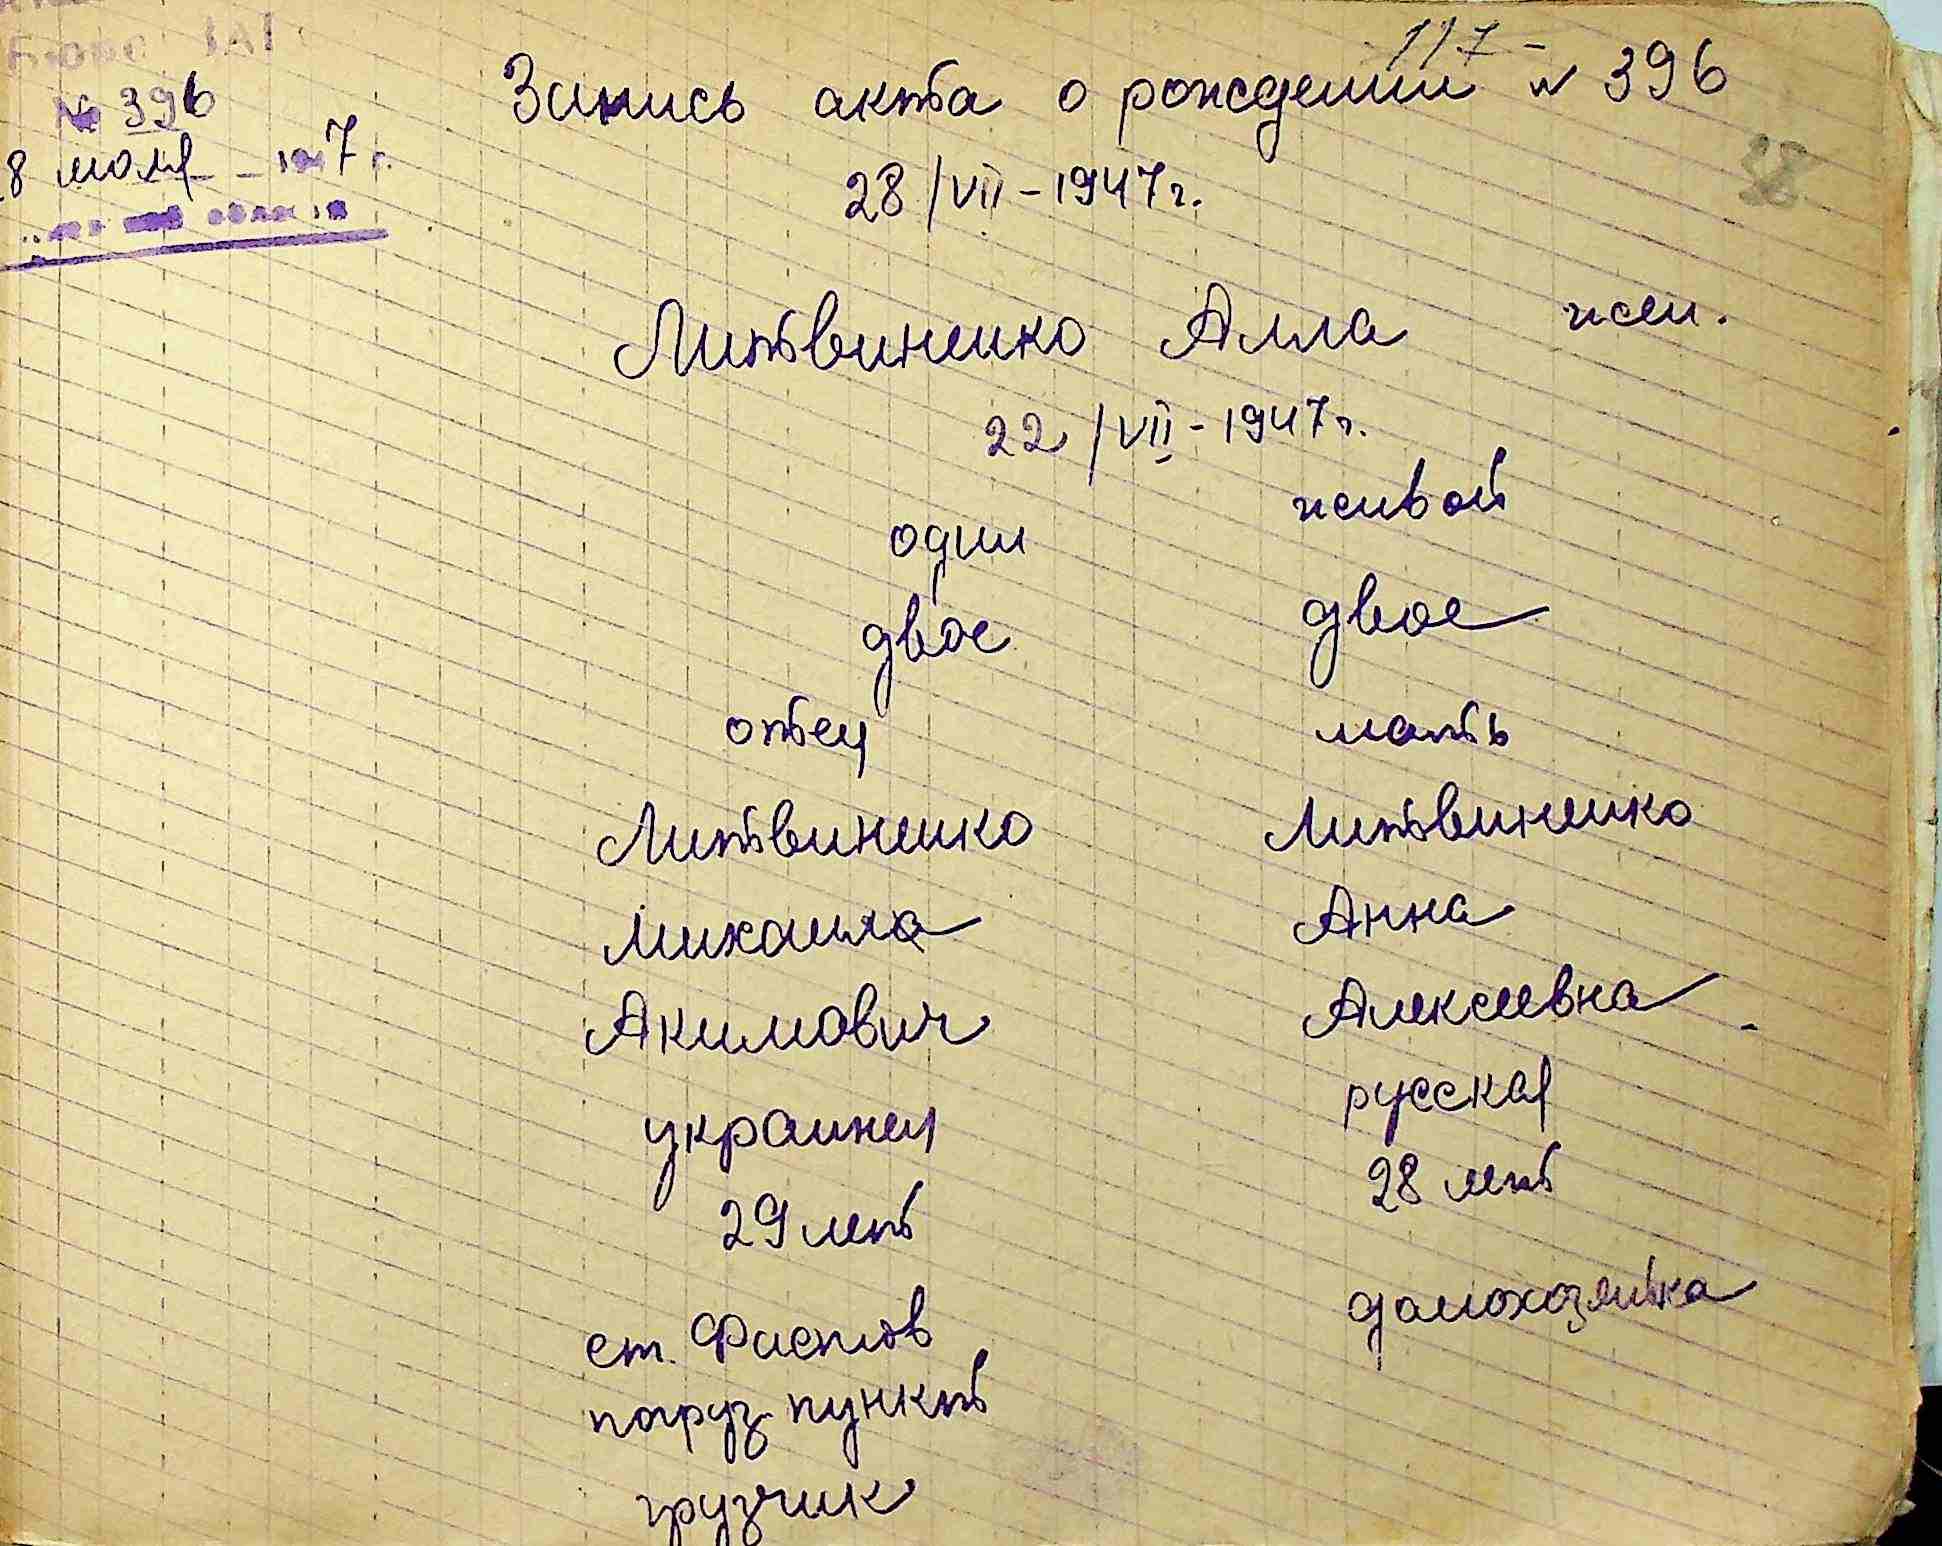 Бюро ЗАГ
№ 396
8 июля 1947 г.
области
117 -
Запись акта о рождении № 396
28/VII - 1947 г.
38
Литвиненко Алла жен.
22/VII - 1947 г.
один живой
двое двое
отец мать
Литвиненко Литвиненко
Михаила Анна
Акимович Алексеевна
украинец русская
29 лет 28 лет
ст. Фастов домохозяйка
погруз. пункт
грузчик